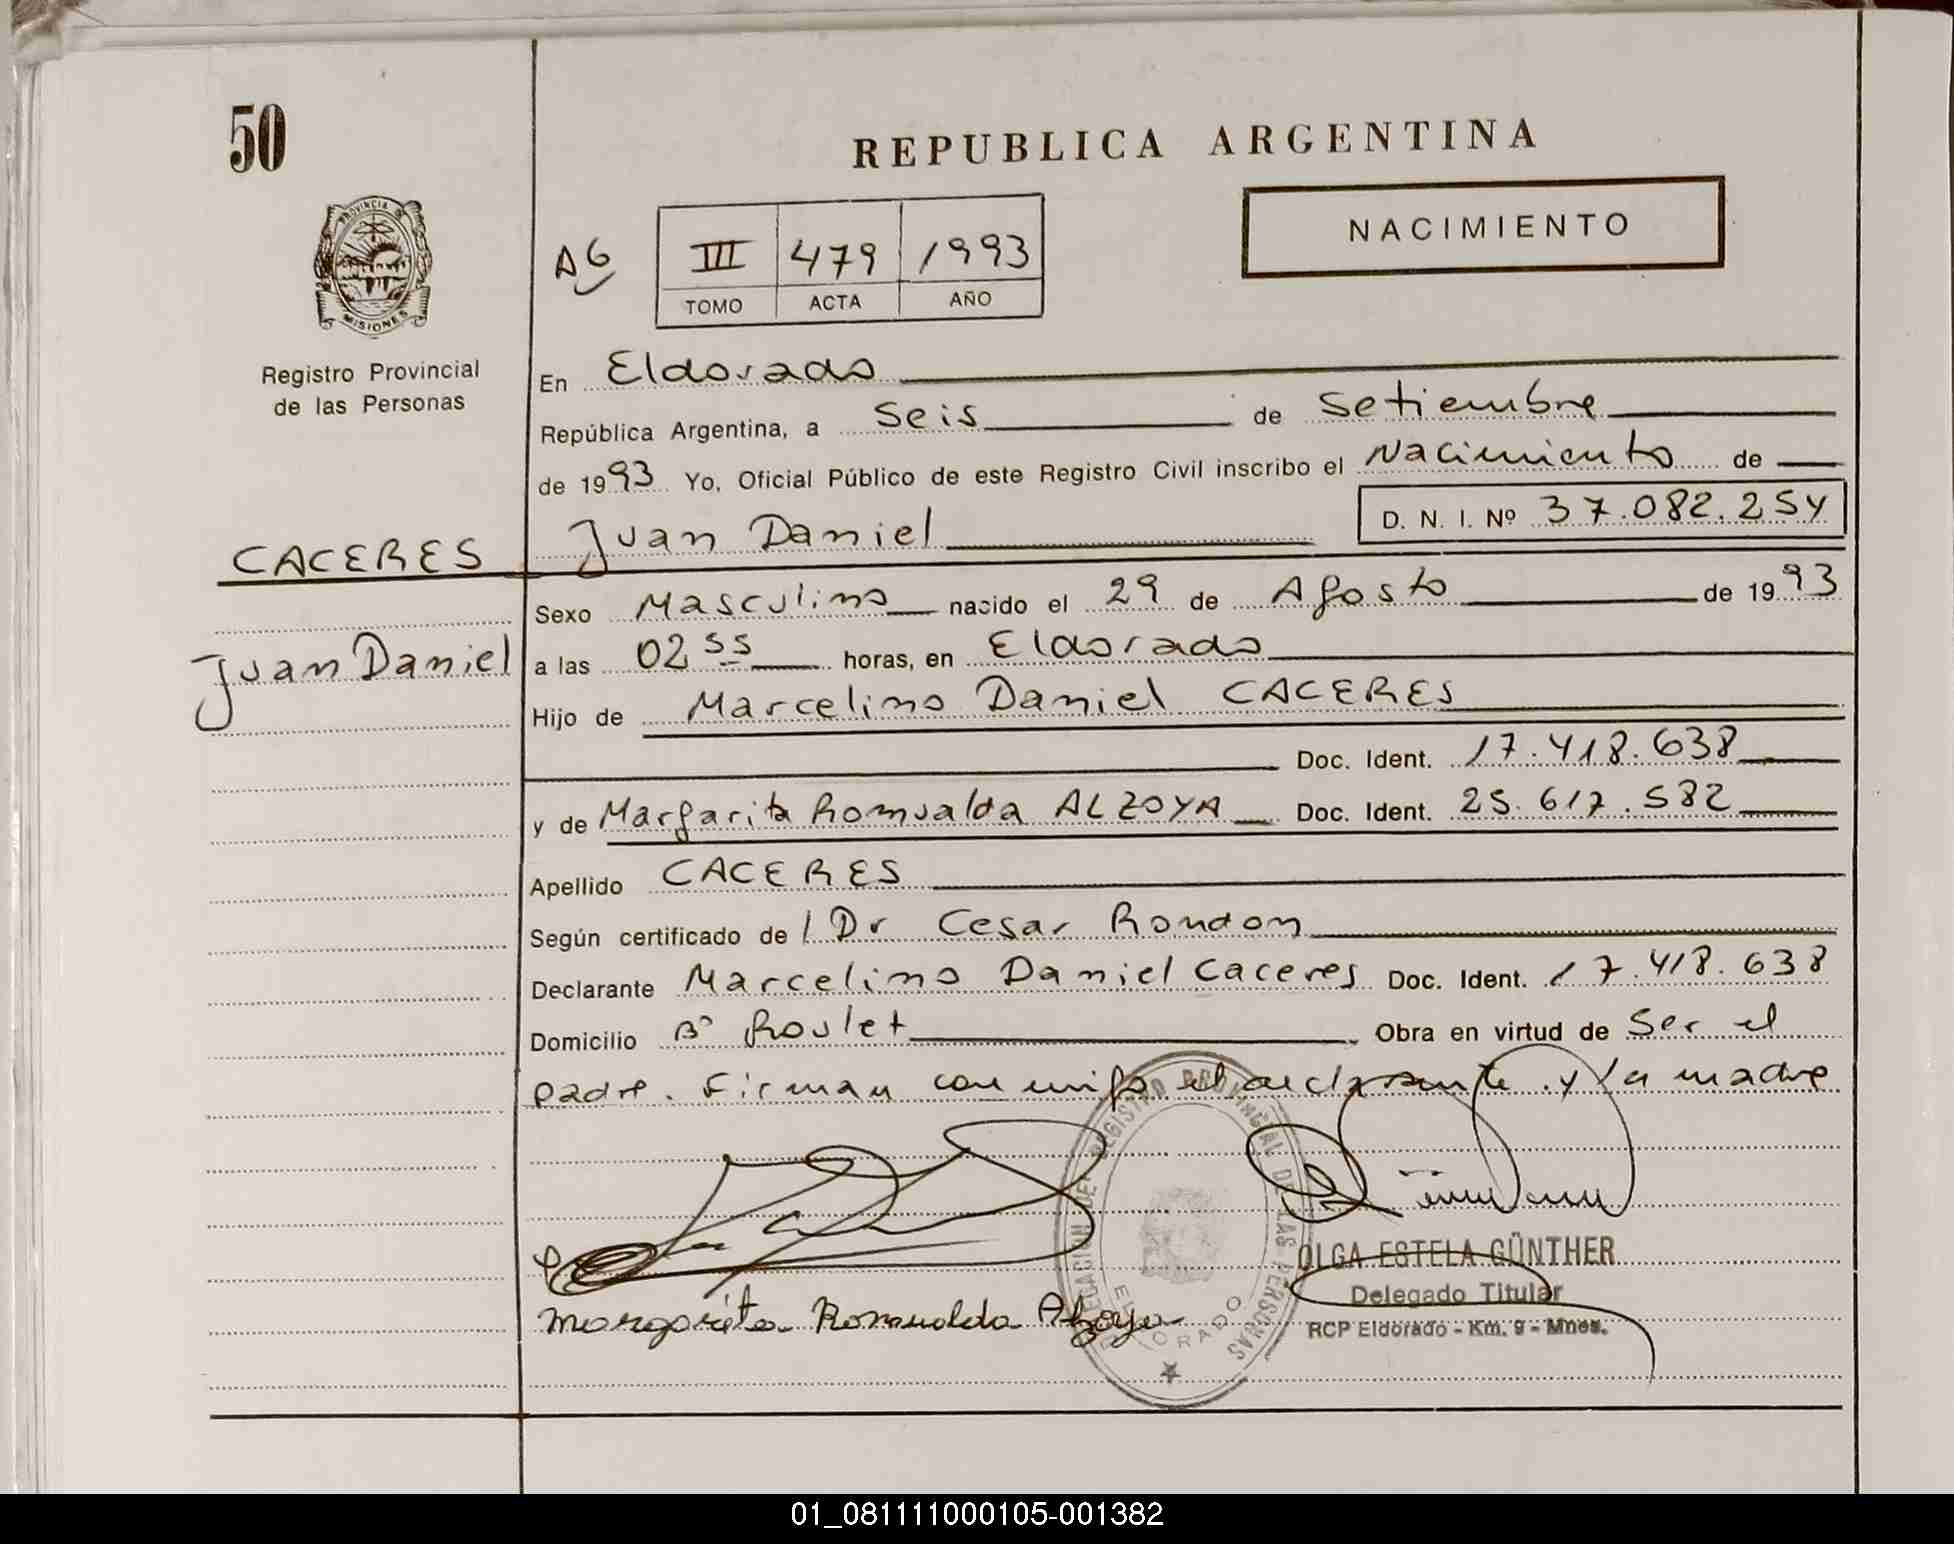 50
REPUBLICA ARGENTINA
PROVINCIA DE
MISIONES
Registro Provincial
de las Personas
A6
III 479 1993
TOMO ACTA AÑO
NACIMIENTO
En Eldorado
República Argentina, a Seis de Setiembre
de 1993 Yo, Oficial Público de este Registro Civil inscribo el Nacimiento de
D. N. I. Nº 37.082.254
CACERES
Juan Daniel
Juan Daniel
Sexo Masculino nacido el 29 de Agosto de 1993
a las 02 55 horas, en Eldorado
Hijo de Marcelino Daniel CACERES
Doc. Ident. 17.418.638
y de Margarita Romualda ALZOYA Doc. Ident. 25.617.582
Apellido CACERES
Según certificado de / Dr Cesar Rondon
Declarante Marcelino Daniel Caceres Doc. Ident. 17.418.638
Domicilio Bº Roulet Obra en virtud de Ser el
padre. Firman conmigo el declarante y la madre
DELEGACION DEL REGISTRO PROVINCIAL DE LAS PERSONAS
ELDORADO
OLGA ESTELA GÜNTHER
Delegado Titular
RCP Eldorado - Km. 9 - Mnes.
Margarita Romualda Alzoya
01_081111000105-001382